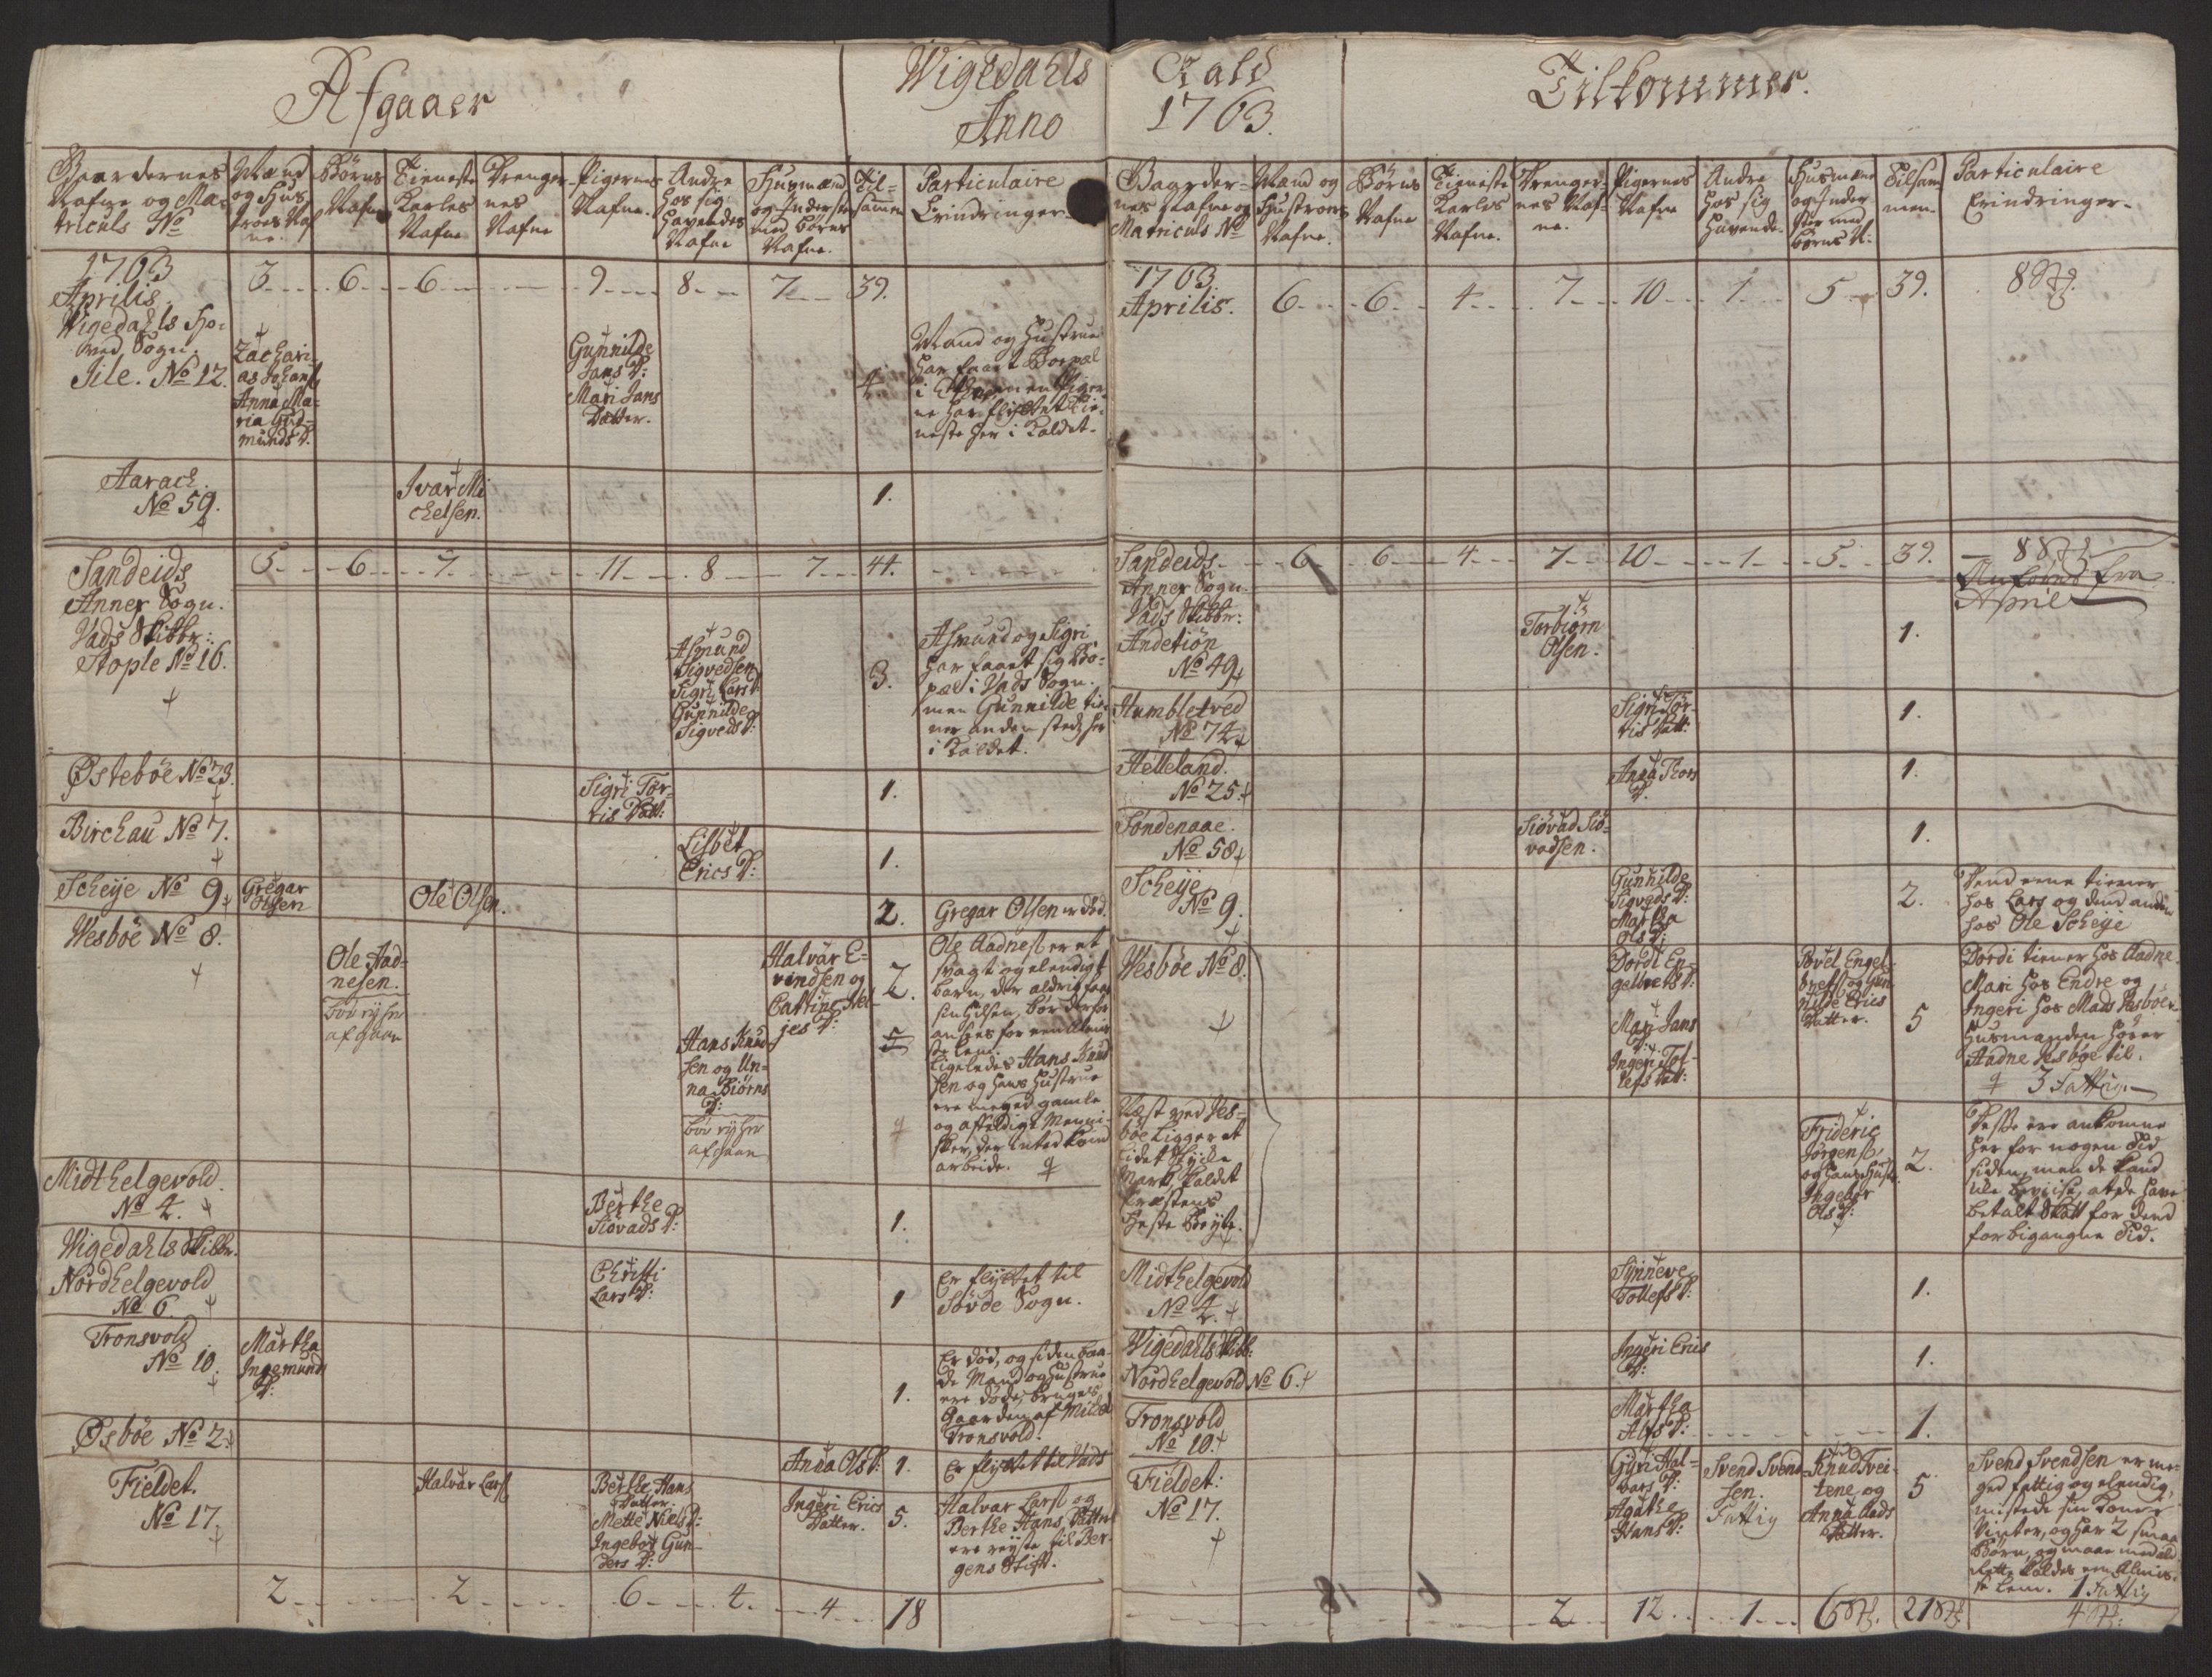 Afgaaer
Wigedahls Kald
Anno 1763.
Tilkommer.
Gaardernes Nafne og Matriculs No
Mænd og Hustroes Nafne.
Børns Nafne
Tieneste Karles Nafne
Drengernes Nafne
Pigernes Nafne.
Andre hos sig havendes Nafne
Husmænd og Inderster med børns Nafne.
Tilsammen
Particulaire Erindringer
1763
Aprilis.
3 6 6 9 8 7 39.
Wigedahls Hoved Sogn.
Iile. No 12.
Zacharias Johans
Anna Maria Gudmunds D:
Gunnilde Jans D:
Mari Jans Datter.
4.
Mand og Hustrue
har faaet Boepæl
i
ne har flyttet Tieneste her i Kaldet.
Aarach.
No 59.
Ivar Michelsen.
1.
5 6 7 11 8 7 44.
Sandeids
Annex Sogn.
Vads Skibbr:
Stople No 16.
Asmund Sigvedsen
Sigri Lars D:
Gunnilde Sigveds D:
3.
Asmund og Sigri
har faaet sig Boepæl i Vads Sogn.
men Gunnilde tiener anden steds her
i Kaldet.
Østebøe No 23.
Sigri Torris Datt:
1.
Birchau No 7.
Lisbet Erics D:
1.
Scheije No 9.
Gregar Olsen
Ole Olsen.
2.
Gregar Olsen er død.
Vesbøe No 8.
Ole Aadnesen.
bør rigtig afgaae
Hans Knudsen og Unna Biørns D:
bør rigtig afgaae
Halvar Evindsen og Catrine Meljes D:
2.
5
Ole Aadnes. er et
svagt og elendigt
barn, der aldrig faar
sin Hilsen, bør derfor
ansees for een Almisse lem.
Ligeledes Hans Knudsen og hans Hustrue
ere meget gamle
og affeldige Mennisker, der intet kand
arbeide.
Midthelgevold.
No 4.
Berthe Siovads D:
1.
Wigedahls Skibbr.
Nordhelgevold
No 6.
Christi Lars D:
1
Er flyttet til
Søvde Sogn.
Tronsvold
No 10.
Martha Ingemunds D:
1.
Er død, og siden baade Mand og Hustrue
ere døde, bruges
Gaarden af
Tronsvold.
Øsbøe No 2.
Anna Ols D:
1.
Er flyttet til Vads
Fieldet.
No 17.
Halvar Lars.
Berthe Hans Datter.
Mette Niels D:
Ingebor Gunders D:
Ingeri Erics Datter.
5.
Halvar Lars. og
Berthe Hans Datter
ere reyste til Bergens Stift.
2 2 6 4 4 18
Gaardernes Nafne og Matriculs No
Mand og Hustroes Nafne.
Børns Nafne
Tieneste Karles Nafne.
Drengernes Nafne.
Pigernes Nafne
Andre hos sig havende.
Husmænd og Inderster med børns N:
Tilsammen.
Particulaire Erindringer.
1763
Aprilis.
6 6 4 7 10 1 5 39.
Sandeids
Annex Sogn.
6 6 4 7 10 1 5 39.
Anførte fra
April
Vads Skibbr:
Andetiøn
No 49
Torbiørn Olsen.
1.
Humbletved
No 74
Sigri Torris Datt:
1.
Helleland.
No 25.
Anna Thors D:
1.
Søndenaae.
No 58
Siovad Siovadsen.
1.
Scheije
No 9.
Gunnilde Sigveds D:
Martha Ols D:
2.
Dend eene tiener
hos Lars og dend anden
hos Ole Scheije
Vesbøe No 8.
Dordi Engelbrets D:
Mari Jans D:
Ingeri Tollefs Datt:
Povel Engelbrets. og Gunnilde Erics Datter.
5
Dordi tiener hos Aadne.
Mari hos Endre og
Ingeri hos Mads Vesbøe.
Husmanden hører
Aadne Vesbøe til.
3 Fattig.
Næst ved Vesbøe ligger et
lidet Stycke
Mark, kaldet
Præstens
Heste
Frideric Jørgens.
og hans Hustr.
Ingebor Ols D:
2.
Disse ere ankomne
her for nogen Tid
siden, men de kand
ille beviise, at de have
betalt Skatt for dend
forbigangne Tid.
Midthelgevold
No 4.
Synneve Tollefs D:
1.
Wigedahls Skibb:
Nordhelgevold No 6.
Ingeri Erics D:
1.
Tronsvold
No 10.
Martha Alfs D:
1.
Fieldet:
No 17.
Guri Halvars D:
Agathe Hans D:
Svend Svendsen.
Fattig
Knud Tveitene og
Anna Aads Datter.
5
Svend Svendsen er meged fattig og elendig,
mistede sin Kone i
Vinter, og har 2 smaa
Børn, og maae med all
Rette kaldes een Almisse lem. 1 Fattig
2 12 1 6 21